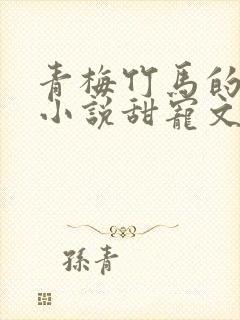 青梅竹馬的
小說甜寵文
孫青